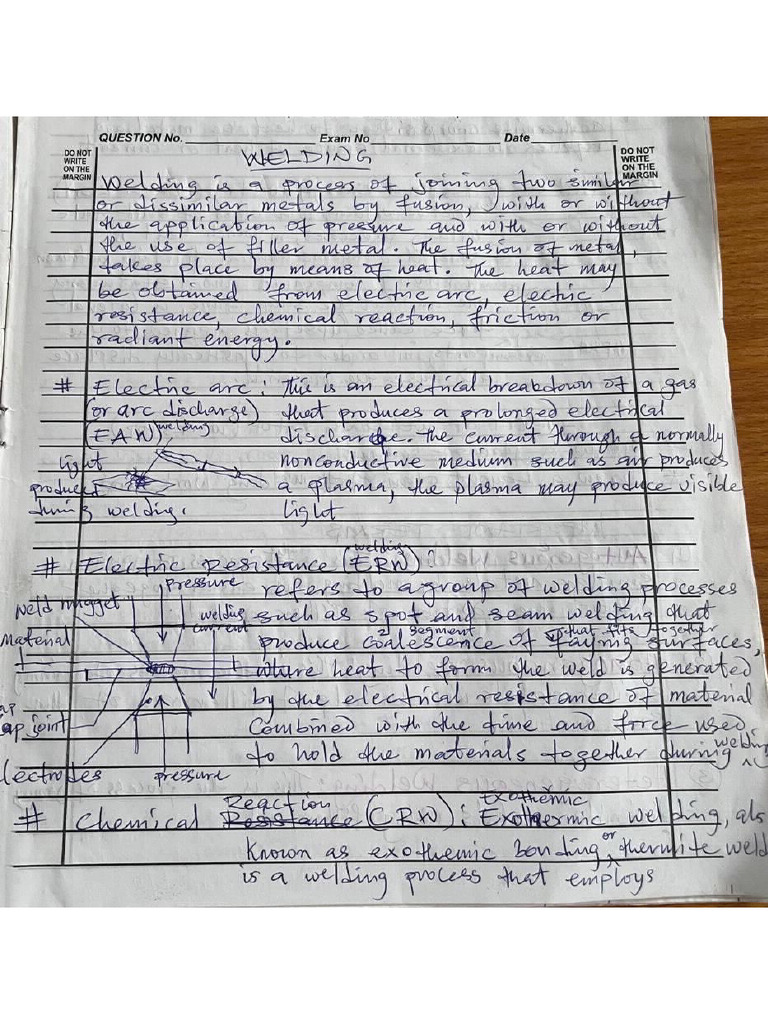 QUESTION No. Exam No Date
DO NOT WRITE ON THE MARGIN
DO NOT WRITE ON THE MARGIN
WELDING
Welding is a process of joining two similar
or dissimilar metals by fusion, with or without
the application of pressure and with or without
the use of filler metal. The fusion of metal,
takes place by means of heat. The heat may
be obtained from electric arc, electric
resistance, chemical reaction, friction or
radiant energy.
# Electric arc: This is an electrical breakdown of a gas
(or arc discharge) that produces a prolonged electrical
(EAW) welding discharge. The current through a normally
light nonconductive medium such as air produces
produced a plasma, the plasma may produce visible
during welding. light
# Electric Resistance welding (ERW):
pressure refers to a group of welding processes
weld nugget welding current such as spot and seam welding that
Material produce coalescence of segment faying that fits together surfaces,
where heat to form the weld is generated
by the electrical resistance of material
ap joint combined with the time and force used
to hold the materials together during welding
lectrodes pressure
# Chemical Reaction Resistance (CRW): Exothemic Exothermic welding, als
known as exothemic bonding or thermite weld
is a welding process that employs